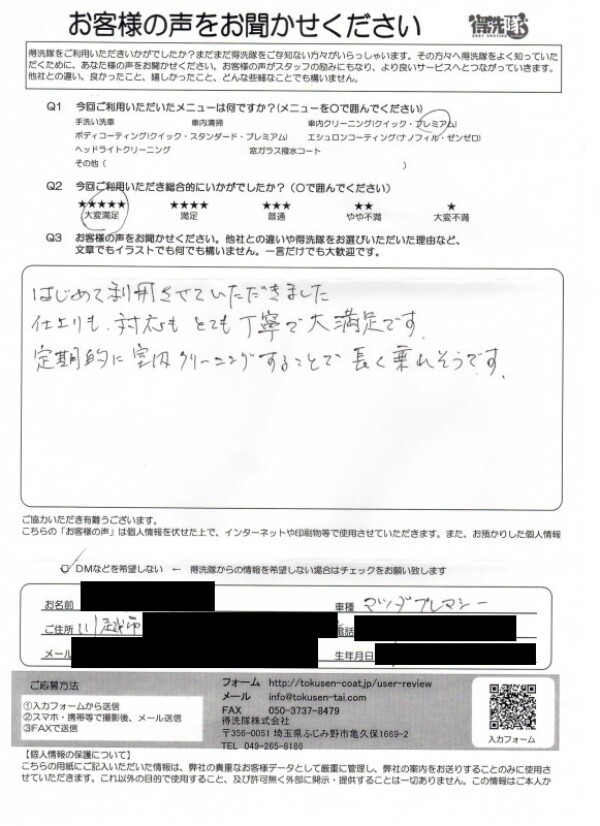 お客様の声をお聞かせください
得洗隊
得洗隊をご利用いただきいかがでしたか?まだまだ得洗隊をご存知ない方々がいらっしゃいます。その方々へ得洗隊をよく知っていた
だくために、あなた様の声をお聞かせください。お客様の声がスタッフの励みにもなり、より良いサービスへとつながっていきます。
他社との違い、良かったこと、嬉しかったこと、どんな些細なことでも構いません。
Q1 今回ご利用いただいたメニューは何ですか?(メニューを〇で囲んでください)
手洗い洗車 車内清掃 車内クリーニング(クイック・プレミアム)
ボディコーティング(クイック・スタンダード・プレミアム) エシュロンコーティング(ナノフィル・ゼンゼロ)
ヘッドライトクリーニング 窓ガラス撥水コート
その他( )
Q2 今回ご利用いただき総合的にいかがでしたか?(〇で囲んでください)
★★★★★ ★★★★ ★★★ ★★ ★
大変満足 満足 普通 やや不満 大変不満
Q3 お客様の声をお聞かせください。他社との違いや得洗隊をお選びいただいた理由など、
文章でもイラストでも何でも構いません。一言だけでも大歓迎です。
はじめて利用させていただきました
仕上りも、対応もとても丁寧で大満足です。
定期的に室内クリーニングすることで長く乗れそうです。
ご協力いただき有難うございます。
こちらの「お客様の声」は個人情報を伏せた上で、インターネットや印刷物等で使用させていただきます。また、お預かりした個人情報
DMなどを希望しない ← 得洗隊からの情報を希望しない場合はチェックをお願い致します
お名前 車種 マツダプレマシー
ご住所 川越市 電話
メール 生年月日
ご応募方法
①入力フォームから送信
②スマホ・携帯等で撮影後、メール送信
③FAXで送信
フォーム http://tokusen-coat.jp/user-review
メール info@tokusen-tai.com
FAX 050-3737-8479
得洗隊株式会社
〒356-0051 埼玉県ふじみ野市亀久保1669-2
TEL 049-265-8186
入力フォーム
【個人情報の保護について】
こちらの用紙にご記入いただいた情報は、弊社の貴重なお客様データとして厳重に管理し、弊社の案内をお送りすることのみに使用さ
せていただきます。これ以外の目的で使用すること、及び許可無く外部に開示・提供することは一切ありません。この情報はご本人か